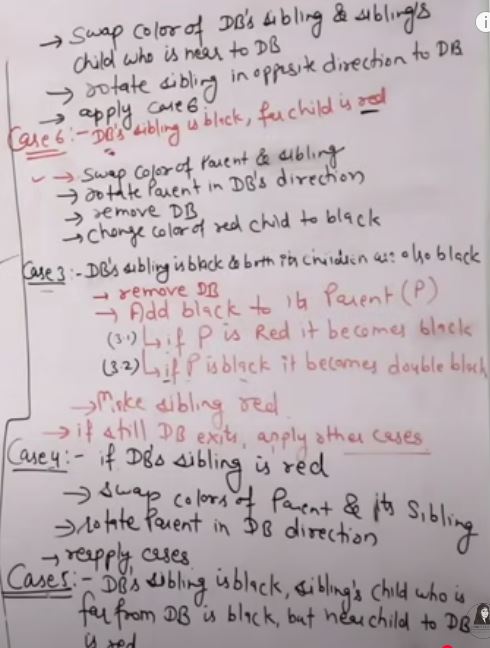 → Swap color of DB's sibling & sibling's
child who is near to DB
→ rotate sibling in opposite direction to DB
→ apply case 6:
Case 6:- DB's sibling is black, far child is red
→ Swap color of Parent & sibling
→ rotate Parent in DB's direction
→ remove DB
→ Change color of red child to black
Case 3:- DB's sibling is black & both its children are also black
→ remove DB
→ Add black to its Parent (P)
(3.1) ↳ if P is Red it becomes black
(3.2) ↳ if P is black it becomes double black
→ Make sibling red
→ if still DB exits, apply other cases
Case 4:- if DB's sibling is red
→ swap colors of Parent & its Sibling
→ rotate Parent in DB direction
→ reapply cases
Case 5:- DB's sibling is black, sibling's child who is
far from DB is black, but near child to DB
is red